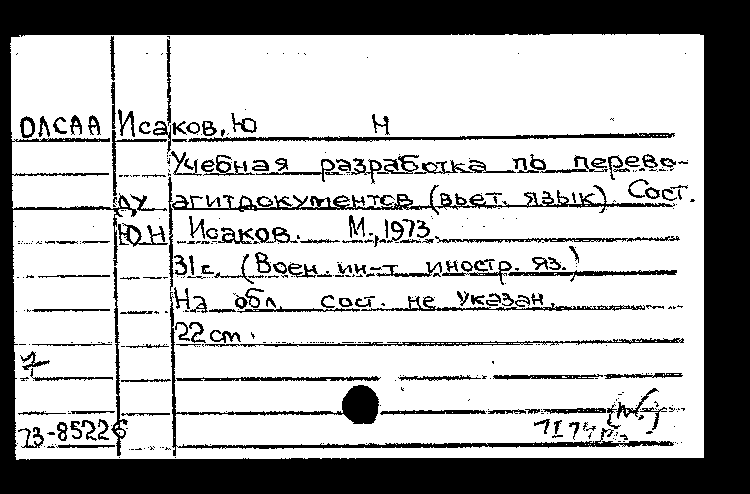 ОЛСАА Исаков, Ю Н
Учебная разработка по перево-
ду агитдокументов (вьет. язык). Сост.
Ю.Н Исаков. М., 1973.
31 с. (Воен. ин-т иностр. яз.)
На обл. сост. не указан.
22 cm.
7
73-85226